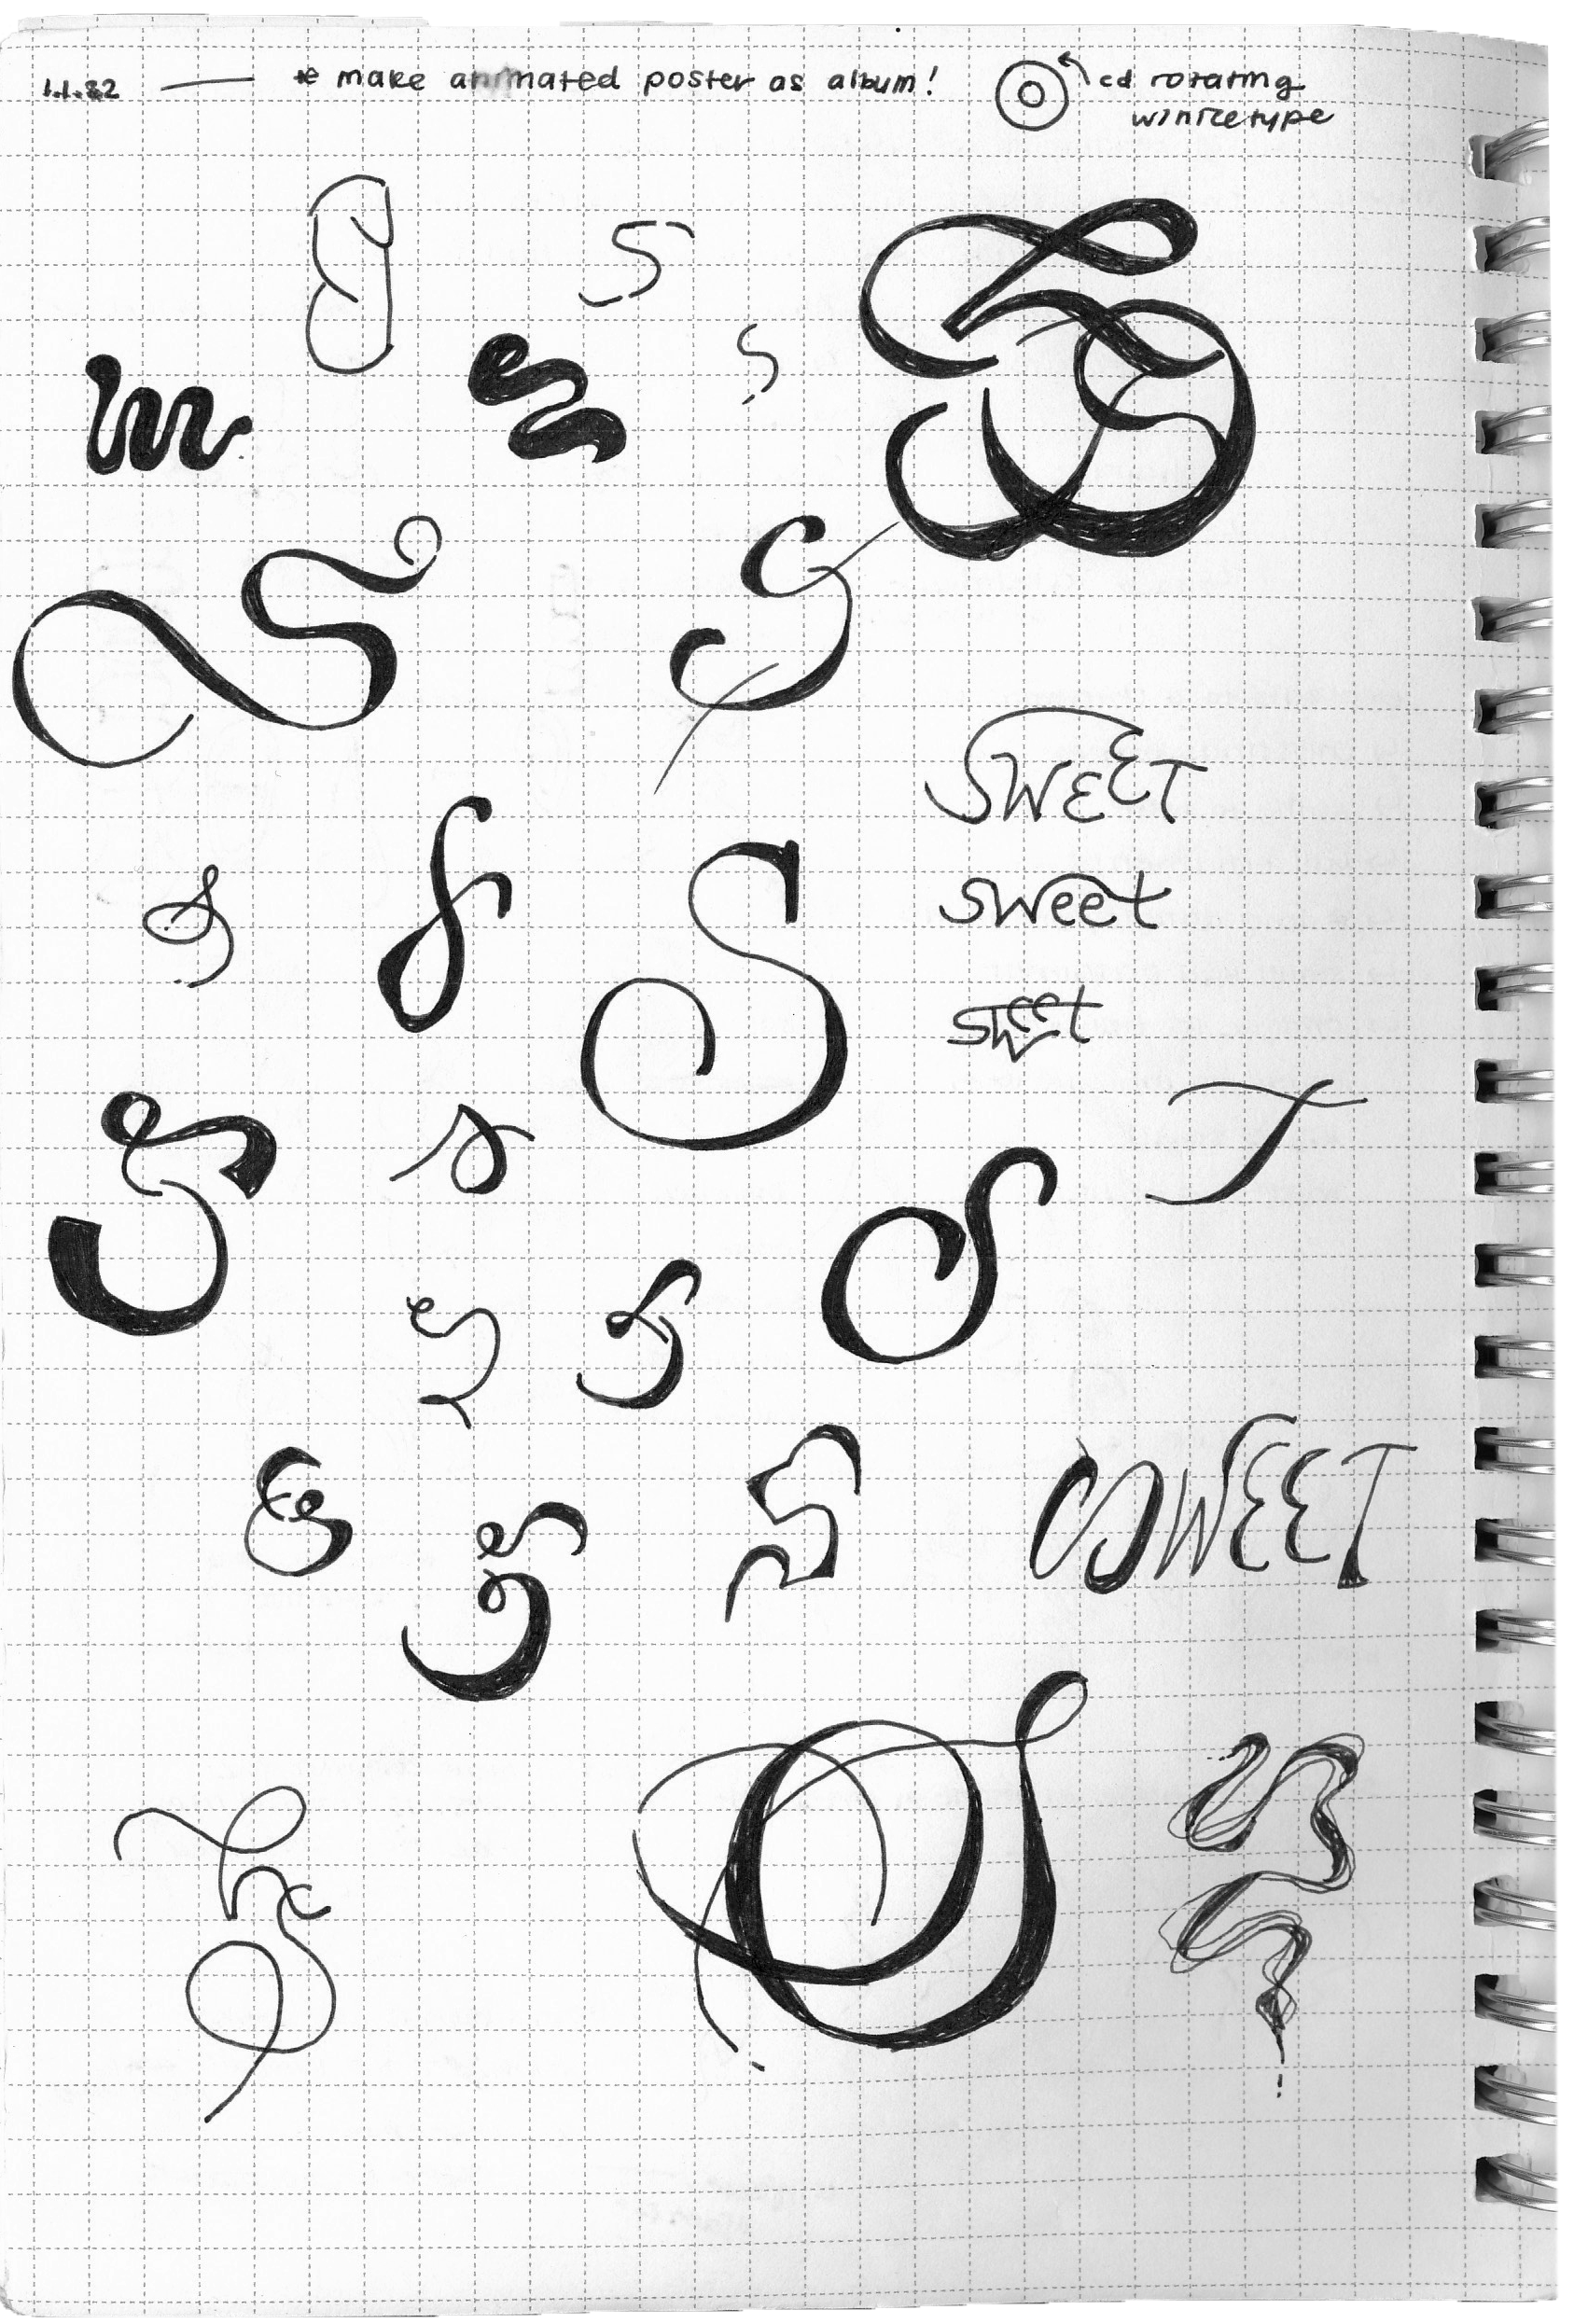 1.1.22 — * make animated poster as album! cd rotating
type
S
S
S
S
S
SWEET
S
S
S
sweet
sweet
S
S
T
S
S
S
S
S
S
SWEET
S
S